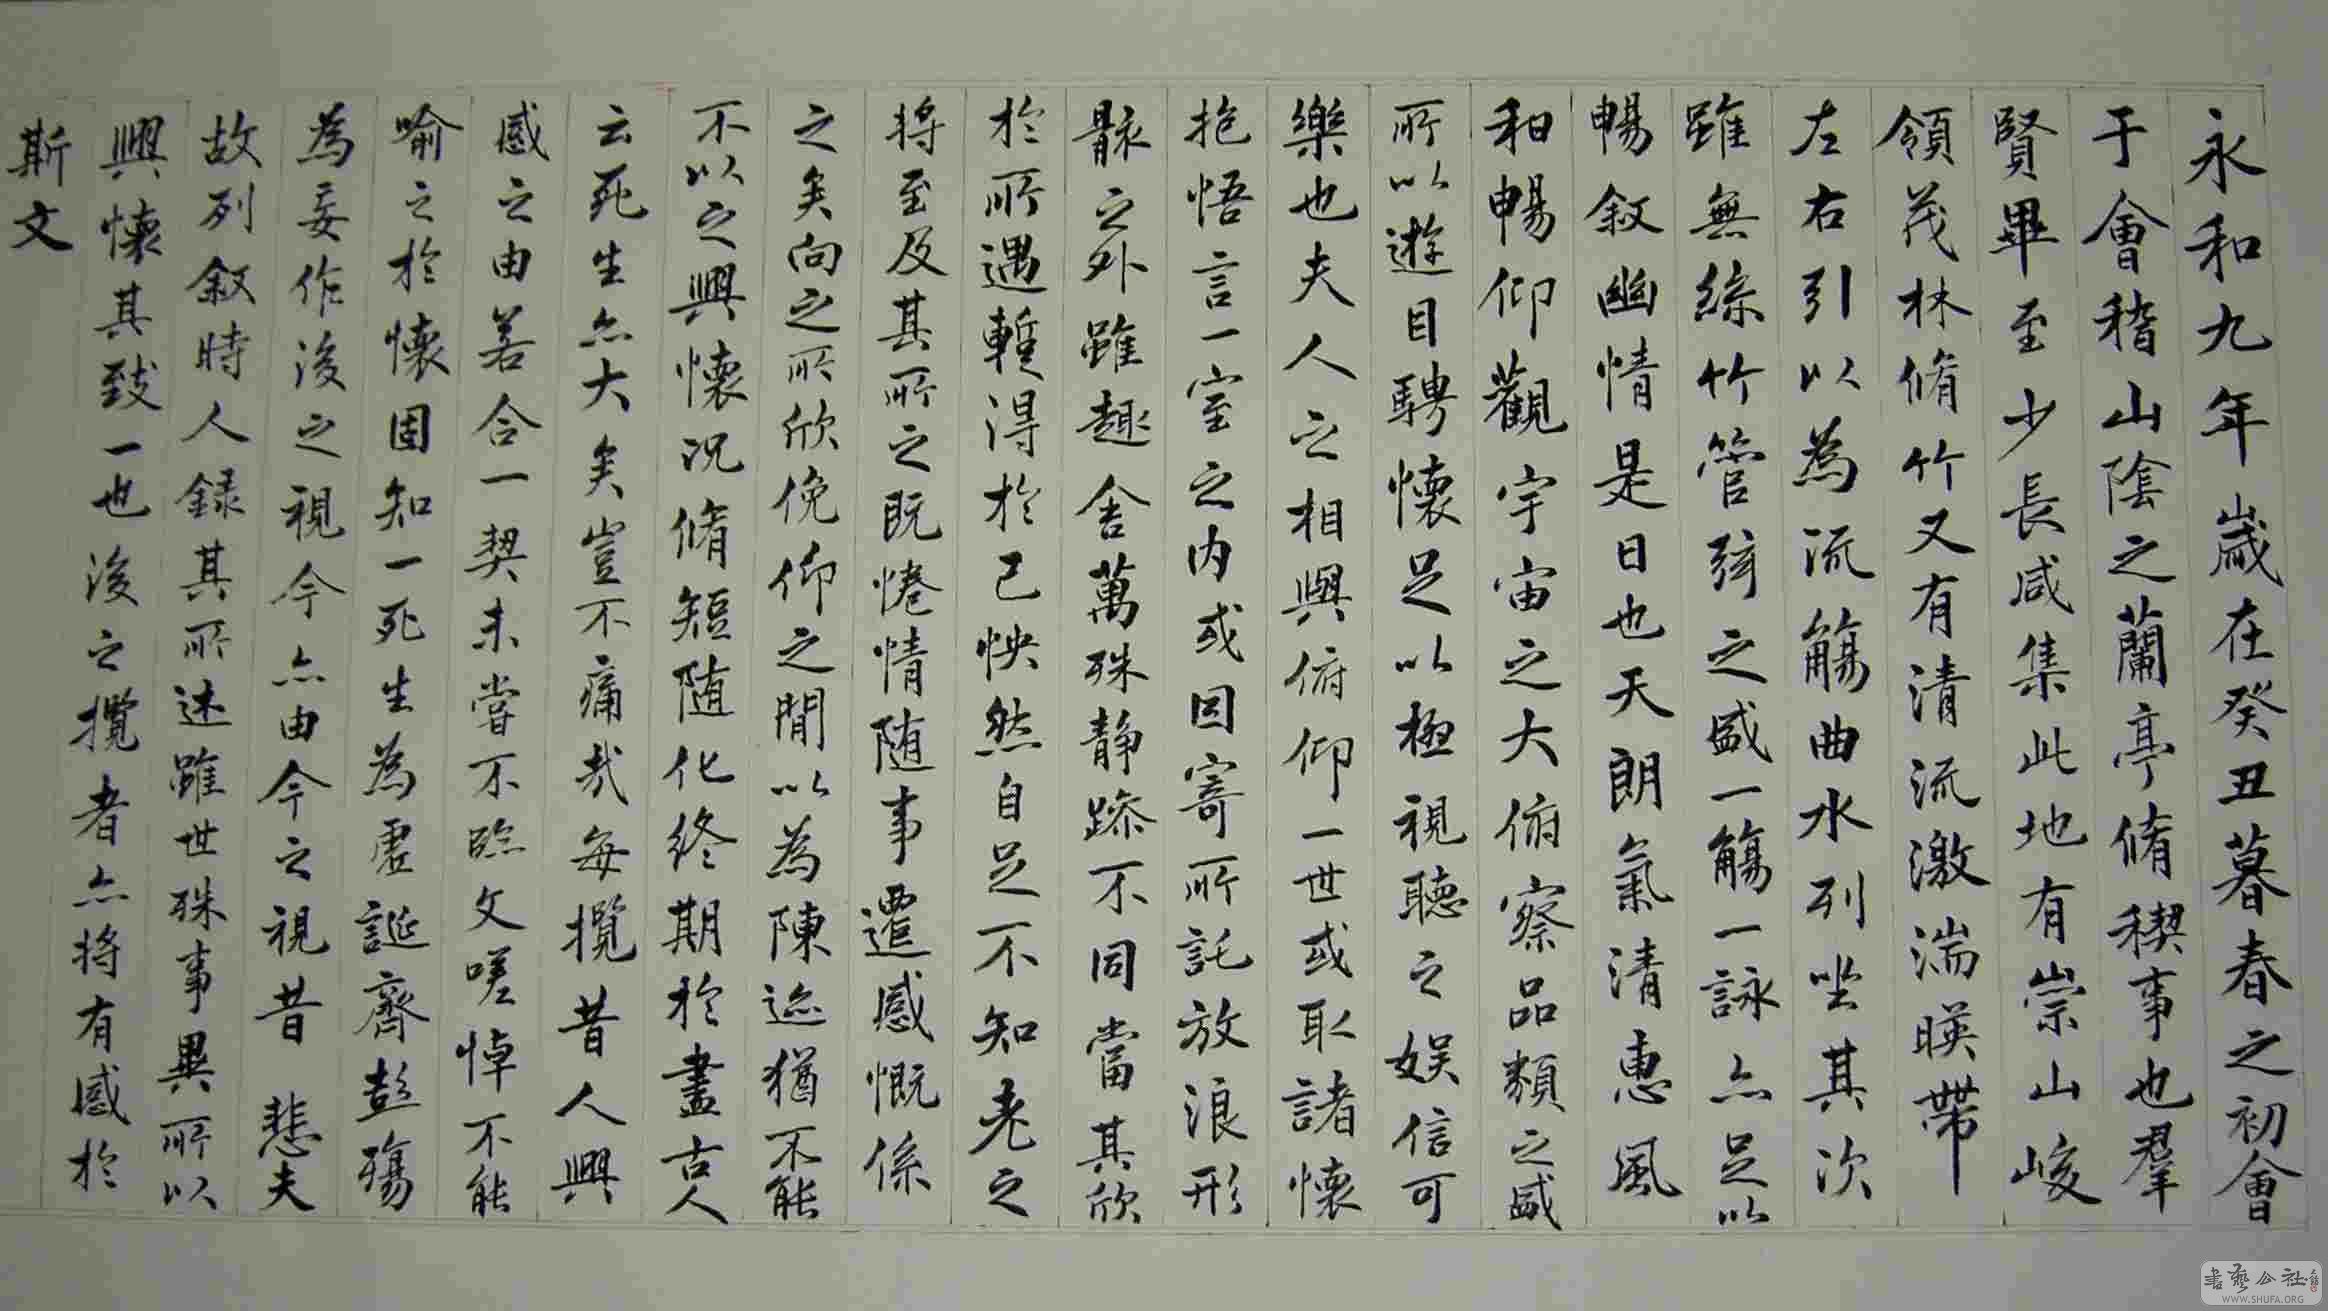 永和九年歲在癸丑暮春之初會
于會稽山陰之蘭亭脩稧事也羣
賢畢至少長咸集此地有崇山峻
領茂林脩竹又有清流激湍暎帶
左右引以為流觴曲水列坐其次
雖無絲竹管弦之盛一觴一詠亦足以
暢敘幽情是日也天朗氣清惠風
和暢仰觀宇宙之大俯察品類之盛
所以遊目騁懷足以極視聽之娛信可
樂也夫人之相與俯仰一世或取諸懷
抱悟言一室之內或因寄所託放浪形
骸之外雖趣舍萬殊靜躁不同當其欣
於所遇暫得於己怏然自足不知老之
將至及其所之既惓情隨事遷感慨係
之矣向之所欣俛仰之閒以為陳迹猶不能
不以之興懷況脩短隨化終期於盡古人
云死生亦大矣豈不痛哉每攬昔人興
感之由若合一契未嘗不臨文嗟悼不能
喻之於懷固知一死生為虛誕齊彭殤
為妄作後之視今亦由今之視昔 悲夫
故列敘時人錄其所述雖世殊事異所以
興懷其致一也後之攬者亦將有感於
斯文
書藝公社
WWW.SHUFA.ORG